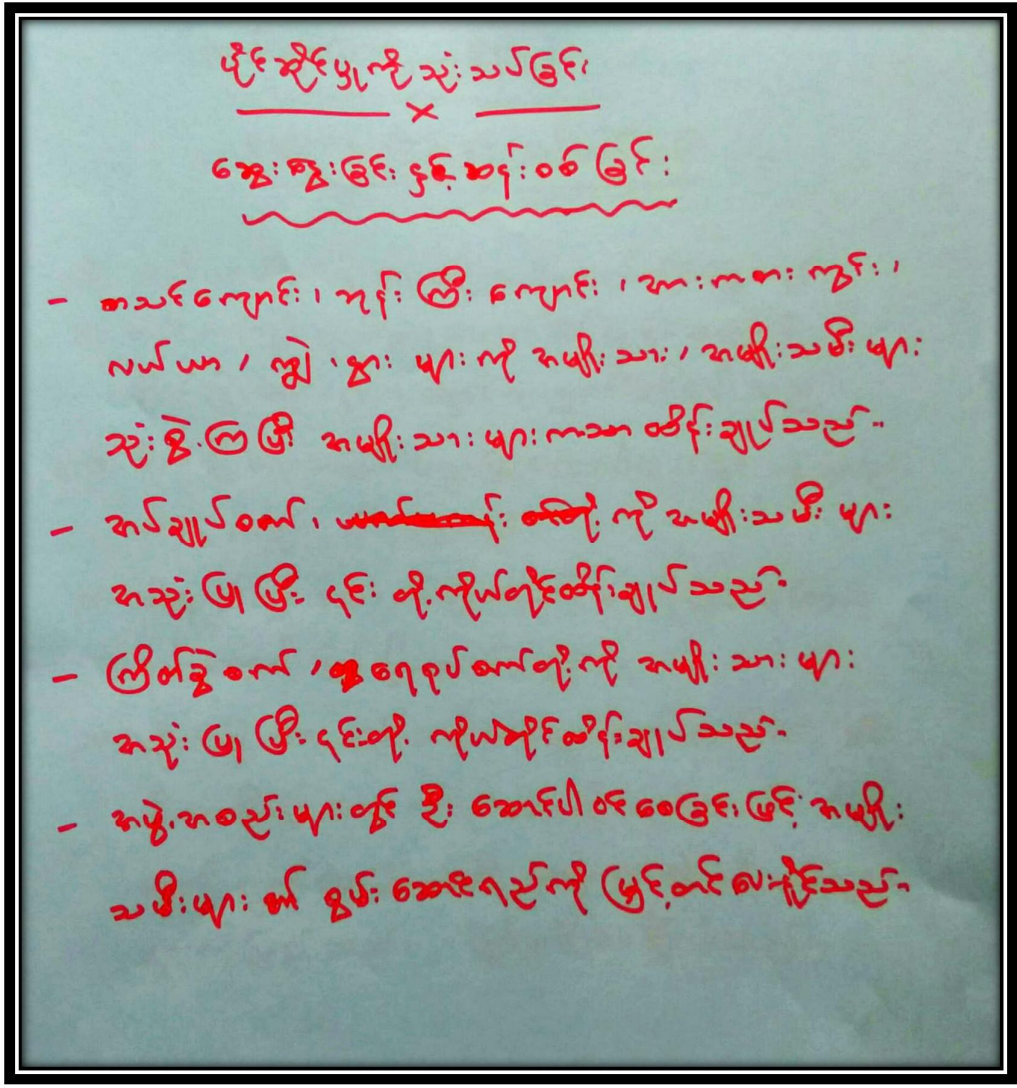 ပိုင်ဆိုင်မှုကိုသုံးသပ်ခြင်း
ဆွေးနွေးခြင်းနှင့်ဆန်းစစ်ခြင်း
- စာသင်ကျောင်း၊ ဘုန်းကြီးကျောင်း၊ အားကစားကွင်း၊
လယ်ယာ၊ ကျွဲ၊ နွားများကို အမျိုးသား၊ အမျိုးသမီးများ
သုံးစွဲကြပြီး အမျိုးသားများကသာထိန်းချုပ်သည်။
- အပ်ချုပ်စက်၊ ကိုအမျိုးသမီးများ
အသုံးပြုပြီး ၎င်းတို့ကိုယ်တိုင်ထိန်းချုပ်သည်။
- ကြိတ်ခွဲစက်၊ ရေစုပ်စက်တို့ကို အမျိုးသားများ
အသုံးပြုပြီး ၎င်းတို့ကိုယ်တိုင်ထိန်းချုပ်သည်။
- အဖွဲ့အစည်းများတွင် ဦးဆောင်ပါဝင်စေခြင်းဖြင့် အမျိုး
သမီးများ၏ စွမ်းဆောင်ရည်ကို မြှင့်တင်ပေးနိုင်သည်။